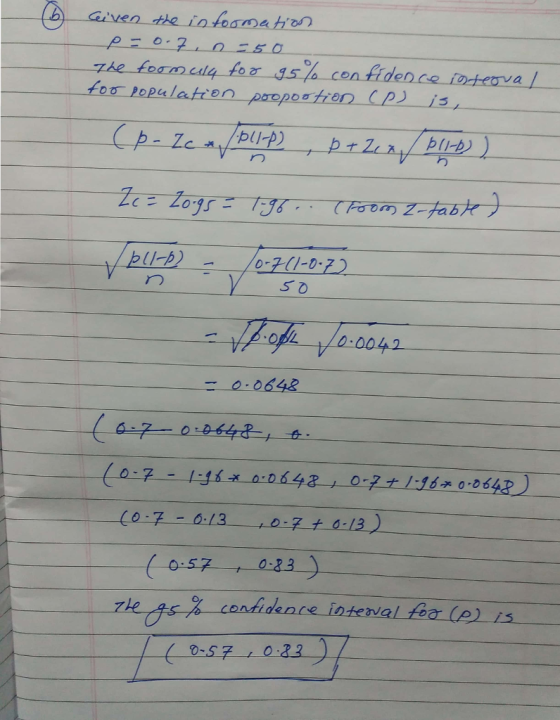 (b) Given the information
p = 0.7, n = 50
The formula for 95% confidence interval
for population proportion (p) is,
(p - Zc * √(p(1-p)/n) , p + Zc * √(p(1-p)/n))
Zc = Z0.95 = 1.96 .. (From Z-table)
√(p(1-p)/n) = √(0.7(1-0.7)/50)
= √0.0042
= 0.0648
(0.7 - 0.0648, 0.
(0.7 - 1.96 * 0.0648, 0.7 + 1.96 * 0.0648)
(0.7 - 0.13, 0.7 + 0.13)
(0.57, 0.83)
The 95% confidence interval for (p) is
(0.57, 0.83)